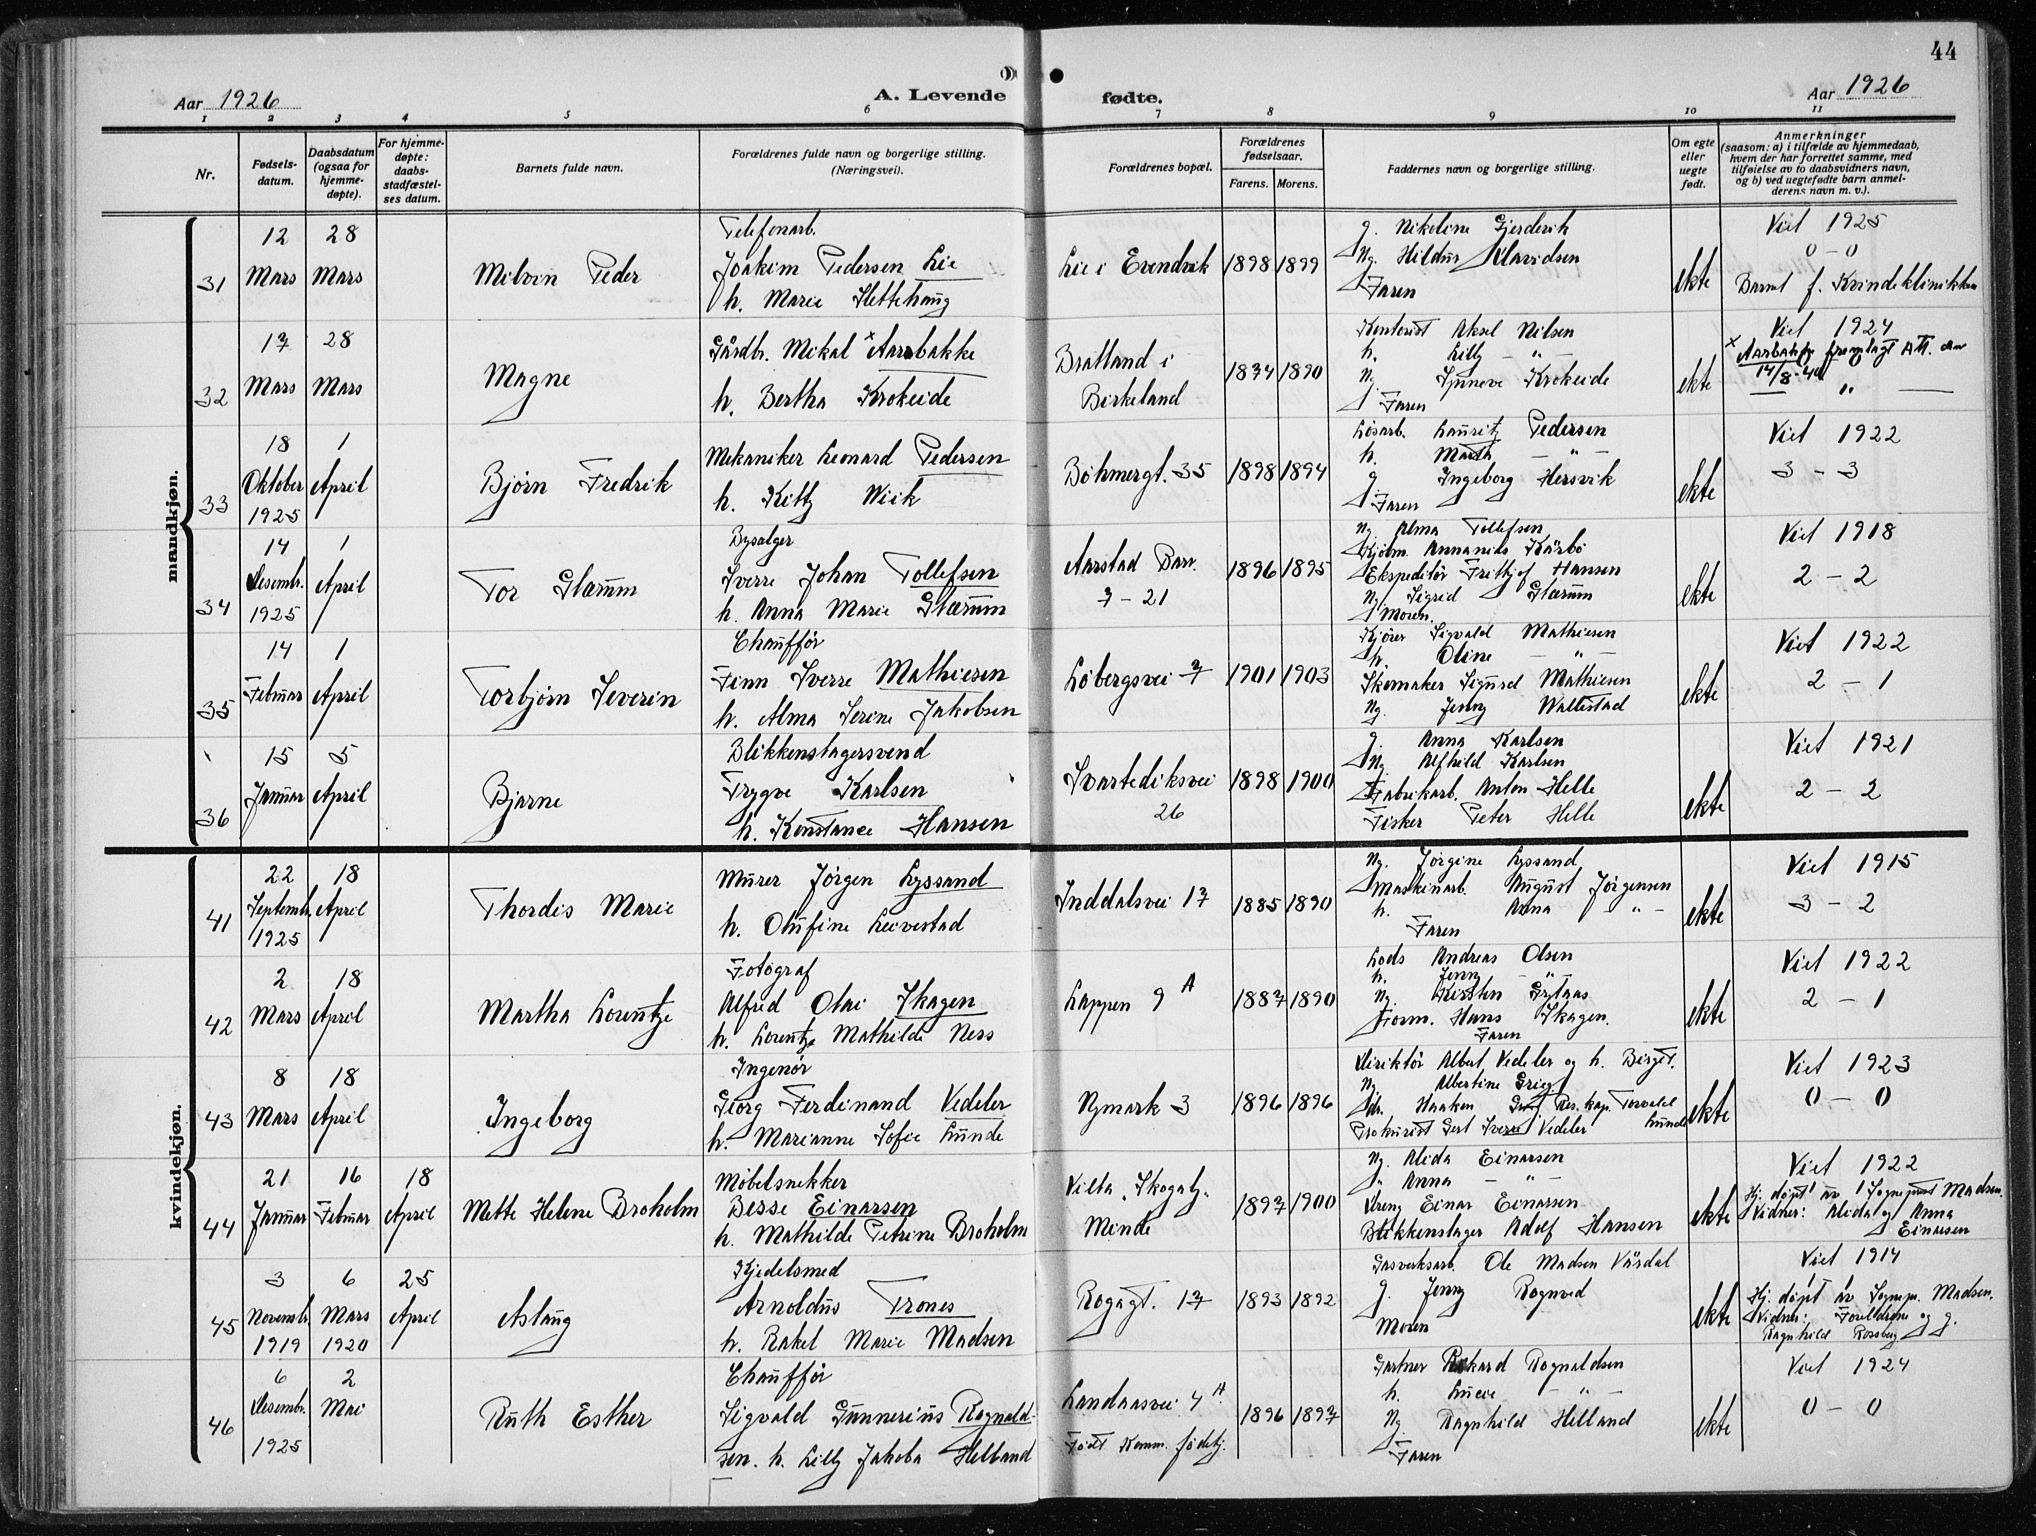 44
Aar 1926
A. Levende
fødte.
Aar 1926
1 2 3 4 5 6 7 8 9 10 11
Nr.
Fødsels-
datum.
Daabsdatum
(ogsaa for
hjemme-
døpte).
For hjemme-
døpte:
daabs-
stadfæstel-
ses datum.
Barnets fulde navn.
Forældrenes fulde navn og borgerlige stilling.
(Næringsvei).
Forældrenes bopæl.
Forældrenes
fødselsaar.
Farens. Morens.
Faddernes navn og borgerlige stilling.
Om egte
eller
uegte
født.
Anmerkninger
(saasom: a) i tilfælde av hjemmedaab,
hvem der har forrettet samme, med
tilføielse av to daabsvidners navn,
og b) ved uegtefødte barn anmel-
derens navn m. v.).
mandkjøn.
31
12
Mars
28
Mars
Milvin Peder
Telefonarb.
Joakim Pedersen Lie
h. Marie Slettehaug
Lie i Evendvik
1898 1899
g. Nikoline Gjerdevik
Ng. Hildur Davidsen
Faren
ekte
Viet 1925
0 - 0
Barnet f. Kvindeklinikken
32
17
Mars
28
Mars
Magne
Gårdbr. Mikal x Aarsbakke
h. Bertha Krokeide
Bratland i
Birkeland
1874 1890
Kontorist Aksel Nilsen
h. Lilly - " -
Ng. Synneve Krokeide
Faren
ekte
Viet 1924
x Aarbakke fremlagt Att.
14/8-40
"
33
18
Oktober
1925
1
April
Bjørn Fredrik
Mekaniker Leonard Pedersen
h. Kitty Wiik
Bøhmergt. 35
1898 1894
Løsarb. Lauritz Pedersen
h. Marth - " -
g. Ingeborg Hersvik
Faren
ekte
Viet 1922
3 - 3
34
14
Desembr.
1925
1
April
Tor Glærum
Bysælger
Sverre Johan Tollefsen
h. Anna Marie Glærum
Aarstad Barr.
7 - 21
1896 1895
Ng. Alma Tollefsen
Kjøbm. Annanias Kårbø
Ekspeditør Fritjof Hansen
Ng. Sigrid Glærum
Moren.
ekte
Viet 1918
2 - 2
35
14
Februar
1
April
Torbjørn Severin
Chauffør
Finn Sverre Mathiesen
h. Alma Serine Jakobsen
Løbergsvei 7
1901 1903
Kjører Sigvald Mathiesen
h. Oline - " -
Skomaker Sigurd Mathiesen
Ng. Jenny Wallestad
ekte
Viet 1922
2 - 1
36
15
Januar
5
April
Bjarne
Blikkenslagersvend
Trygve Karlsen
h. Konstance Hansen
Svartediksvei
26
1898 1900
g. Anna Karlsen
Ng. Alfhild Karlsen
Fabrikarb. Anton Helle
Fisker Peter Helle
ekte
Viet 1921
2 - 2
kvindekjøn.
41
22
Septembr.
1925
18
April
Thordis Marie
Murer Jørgen Lyssand
h. Olufine Leivestad
Inddalsvei 17
1885 1890
Ng. Jørgine Lyssand
Maskinarb. August Jørgensen
h. Anna - " -
Faren
ekte
Viet 1915
3 - 2
42
2
Mars
18
April
Martha Lorentze
Fotograf
Alfred Olai Skagen
h. Lorentze Mathilde Ness
Lappen 9 A
1887 1890
Lods Andreas Olsen
h. Jenny - " -
Ng. Kirsten
Form. Hans Skagen.
Faren
ekte
Viet 1922
2 - 1
43
8
Mars
18
April
Ingeborg
Ingenør
Georg Ferdinand Vedeler
h. Marianne Sofie Lunde
Nymark 3
1896 1896
Direktør Albert Vedeler og h. Birgit.
Ng. Albertine Grieg
Haaken Res. kap. Torvald
Prokurist Gert Sverre Vedeler Lunde
ekte
Viet 1923
0 - 0
44
21
Januar
16
Februar
18
April
Mette Helene Broholm
Møbelsnekker
Besse Einarsen
h. Mathilde Petrine Broholm
Villa "Skogaly"
Minde
1897 1900
Ng. Alida Einarsen
" Anna - " -
Dreng Einar Einarsen
Blikkenslager Adolf Hansen
ekte
Viet 1922
Hj. døpt av Sogneprest Madsen.
Vidner: Alida og Anna
Einarsen
45
3
Novembr.
1919
6
Mars
1920
25
April
Aslaug
Kjedelsmed
Arnoldus Trones
h. Rakel Marie Madsen
Rogagt. 17
1893 1892
Gasverksarb. Ole Madsen Vårdal
g. Jenny Rognved
Moren
ekte
Viet 1914
Hj. døpt av Sognepr. Madsen.
Vidner: Foreldrene og g.
Ragnhild Rossberg
46
6
Desembr.
1925
2
Mai
Ruth Esther
Chauffør
Sigvald Gunnerius Rognald-
sen. h. Lilly Jakoba Helland
Landaasvei 4 A
Født Komm. fødehj.
1896 1897
Gartner Rikard Rognaldsen
h. Lucie - " -
Ng. Ragnhild Helland
Faren
ekte
Viet 1924
0 - 0